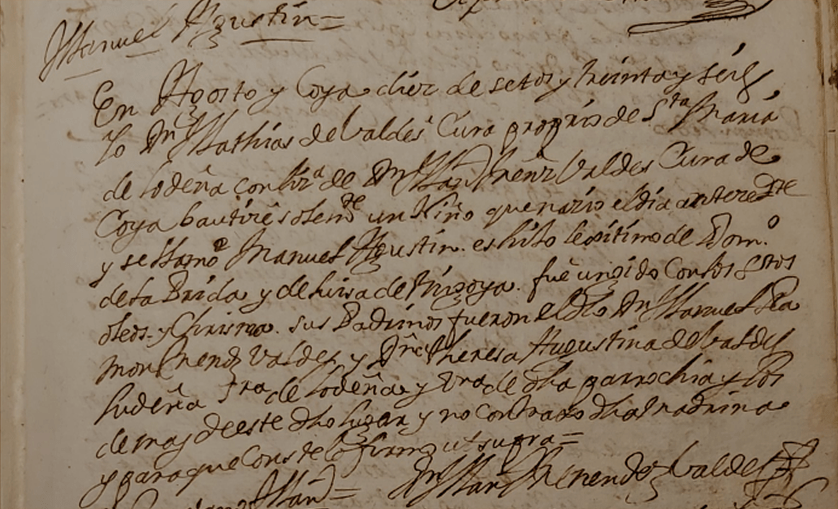 Manuel Agustin=
En Agosto y Coya diez de setos y treinta y seis
Yo Dn Mathias de Valdes Cura proprio de Sta Maria
de Lodeña con lizª de Dn Man Menz Valdes Cura de
Coya bautize solemte un Niño que nazio el dia antecedte
y se llamo Manuel Agustin. es hijo lexitimo de Domº
de la Brida y de Luisa de fue ungido Con los Stos
oleos y Chrisma. sus Padrinos fueron el dho Dn Manuel Ra
mon Menendz Valdez y Dña Theresa Augustina de Valdes
Ludeña de Lodeña y de dha parrochia y los
demas de este dho lugar y no contraxo dha Madrina
y para que conste lo firmo ut supra=
Dn Man Menendez Valdes